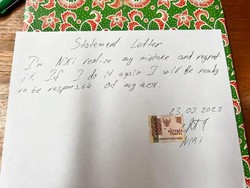 Statement Letter
I'm Niki realize my mistake and regret
it. If I do it again I will be ready
to be responsib of my act.
23.09.2023